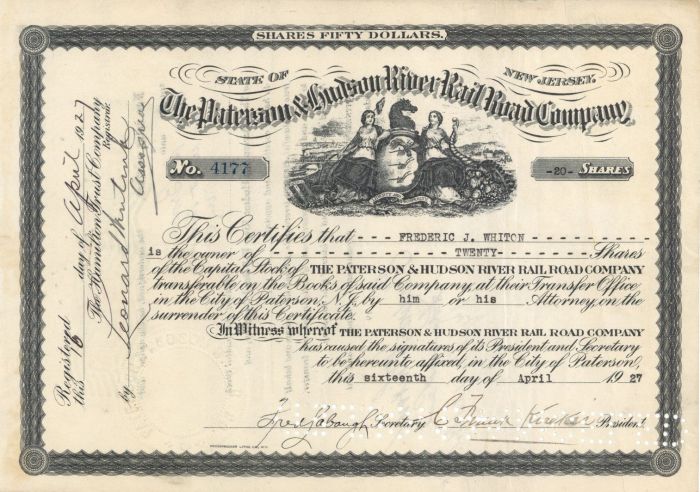 SHARES FIFTY DOLLARS.
STATE OF NEW JERSEY.
The Paterson & Hudson River Rail Road Company
No. 4177
-20- SHARES
This Certifies that - - - FREDERIC J. WHITON - - - - - - - - - -
is the owner of - - - - - - - - - - - TWENTY - - - - - - - - - Shares
of the Capital Stock of THE PATERSON & HUDSON RIVER RAIL ROAD COMPANY
transferable on the Books of said Company, at their Transfer Office
in the City of Paterson, N.J. by him or his Attorney, on the
surrender of this Certificate.
In Witness whereof THE PATERSON & HUDSON RIVER RAIL ROAD COMPANY
has caused the signatures of its President and Secretary
to be hereunto affixed, in the City of Paterson,
this sixteenth day of April 1927
Secretary President
Registered
this 16 day of April 1927
The Hamilton Trust Company
Registrar
by Leonard